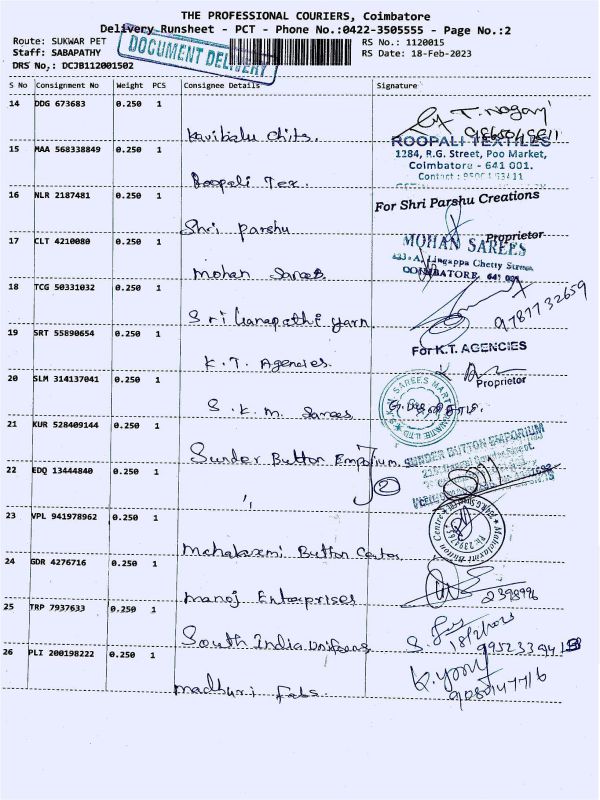 THE PROFESSIONAL COURIERS, Coimbatore
Delivery Runsheet - PCT - Phone No.:0422-3505555 - Page No.:2
Route: SUKWAR PET
RS No.: 1120015
Staff: SABAPATHY
RS Date: 18-Feb-2023
DRS No,: DCJB112001502
DOCUMENT DELIVERY
S No Consignment No Weight PCS Consignee Details Signature
14 DDG 673683 0.250 1
Kavibalu Chits.
T. Nagaraj
ROOPALI TEXTILES
15 MAA 568338849 0.250 1
1284, R.G. Street, Poo Market,
Coimbatore - 641 001.
Contact :
Roopali Tex.
16 NLR 2187481 0.250 1
For Shri Parshu Creations
Shri Parshu
Proprietor
17 CLT 4210080 0.250 1
MOHAN SAREES
Lingappa Chetty Street
COIMBATORE. 641 001
Mohan Sarees.
18 TCG 50331032 0.250 1
Sri Ganapathi yarn
9787732659
19 SRT 55890654 0.250 1
For K.T. AGENCIES
K.T. Agencies.
Proprietor
20 SLM 314137041 0.250 1
S.K.M. Sarees
21 KUR 528409144 0.250 1
Sunder Button Emporium.
SUNDER BUTTON EMPORIUM
22 EDQ 13444840 0.250 1
2
"
23 VPL 941978962 0.250 1
Mahalaxmi Button Centre
Mahalaxmi Button Centre
24 GDR 4276716 0.250 1
Manoj Enterprises
2398996
25 TRP 7937633 0.250 1
South India Uniforms
18/2/2023
26 PLI 200198222 0.250 1
Madhuri Fabs.